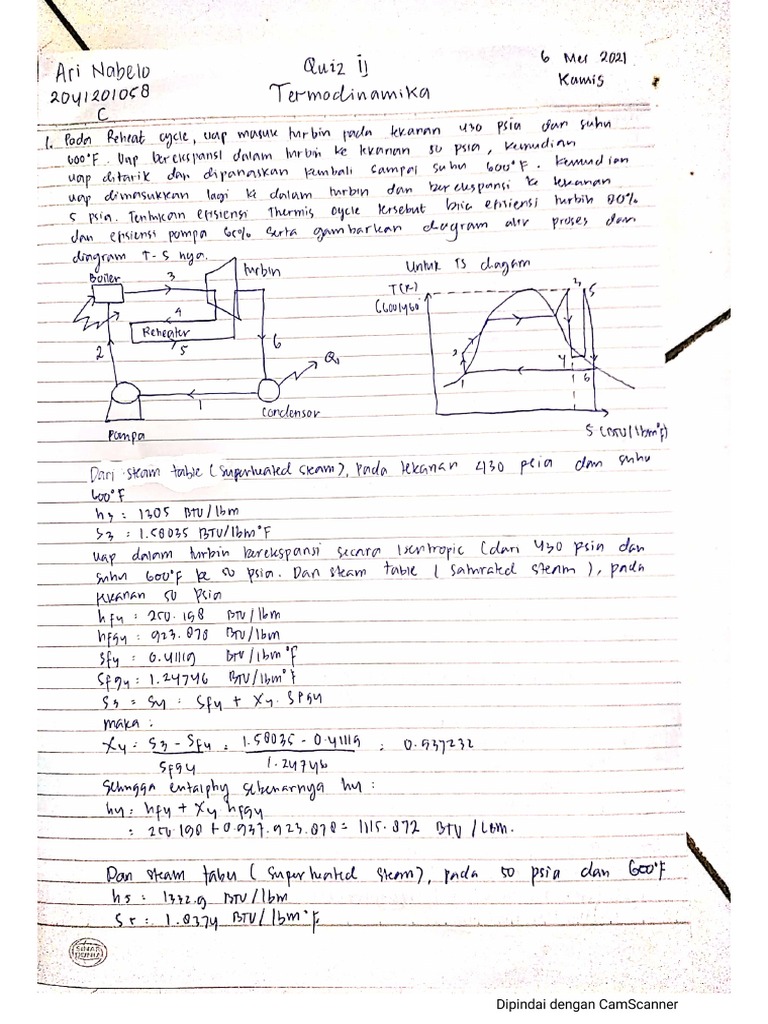 Ari Nabelo
2041201058
C
Quiz ij
Termodinamika
6 Mei 2021
Kamis
1. Pada Reheat cycle, uap masuk turbin pada tekanan 430 psia dan suhu
600°F. Uap berekspansi dalam turbin ke tekanan 50 psia, kemudian
uap ditarik dan dipanaskan kembali sampai suhu 600°F. Kemudian
uap dimasukkan lagi ke dalam turbin dan berekspansi ke tekanan
5 psia. Tentukan efisiensi Thermis cycle tersebut bila efisiensi turbin 80%
dan efisiensi pompa 60% serta gambarkan diagram alir proses dan
diagram T-S nya.
Boiler
3
turbin
4
Reheater
5
2
6
Q
1
Condensor
Pompa
Untuk TS diagam
T(R)
3
5
2
4
1
6
S (BTU/lbm°F)
Dari steam table (superheated steam), Pada tekanan 430 psia dan suhu
600°F
h3 : 1305 BTU/lbm
S3 : 1.58035 BTU/lbm°F
Uap dalam turbin berekspansi secara isentropic (dari 430 psia dan
suhu 600°F ke 50 psia. Dari steam table (saturated steam), pada
tekanan 50 psia
hf4 : 250.198 BTU/lbm
hfg4 : 923.878 BTU/lbm
Sf4 : 0.41119 BTU/lbm°F
Sfg4 : 1.24746 BTU/lbm°F
S3 = S4 : Sf4 + X4. Sfg4
maka :
X4 : S3 - Sf4 : 1.58035 - 0.41119 : 0.937232
Sfg4 1.24746
Sehingga entalphy sebenarnya h4 :
h4 : hf4 + X4 hfg4
: 250.198 + 0.937.923.878 = 1115.872 BTU/lbm.
Dari steam tabel (superheated steam), pada 50 psia dan 600°F
h5 : 1332.9 BTU/lbm
S5 : 1.8374 BTU/lbm°F
SINAR
DUNIA
Dipindai dengan CamScanner